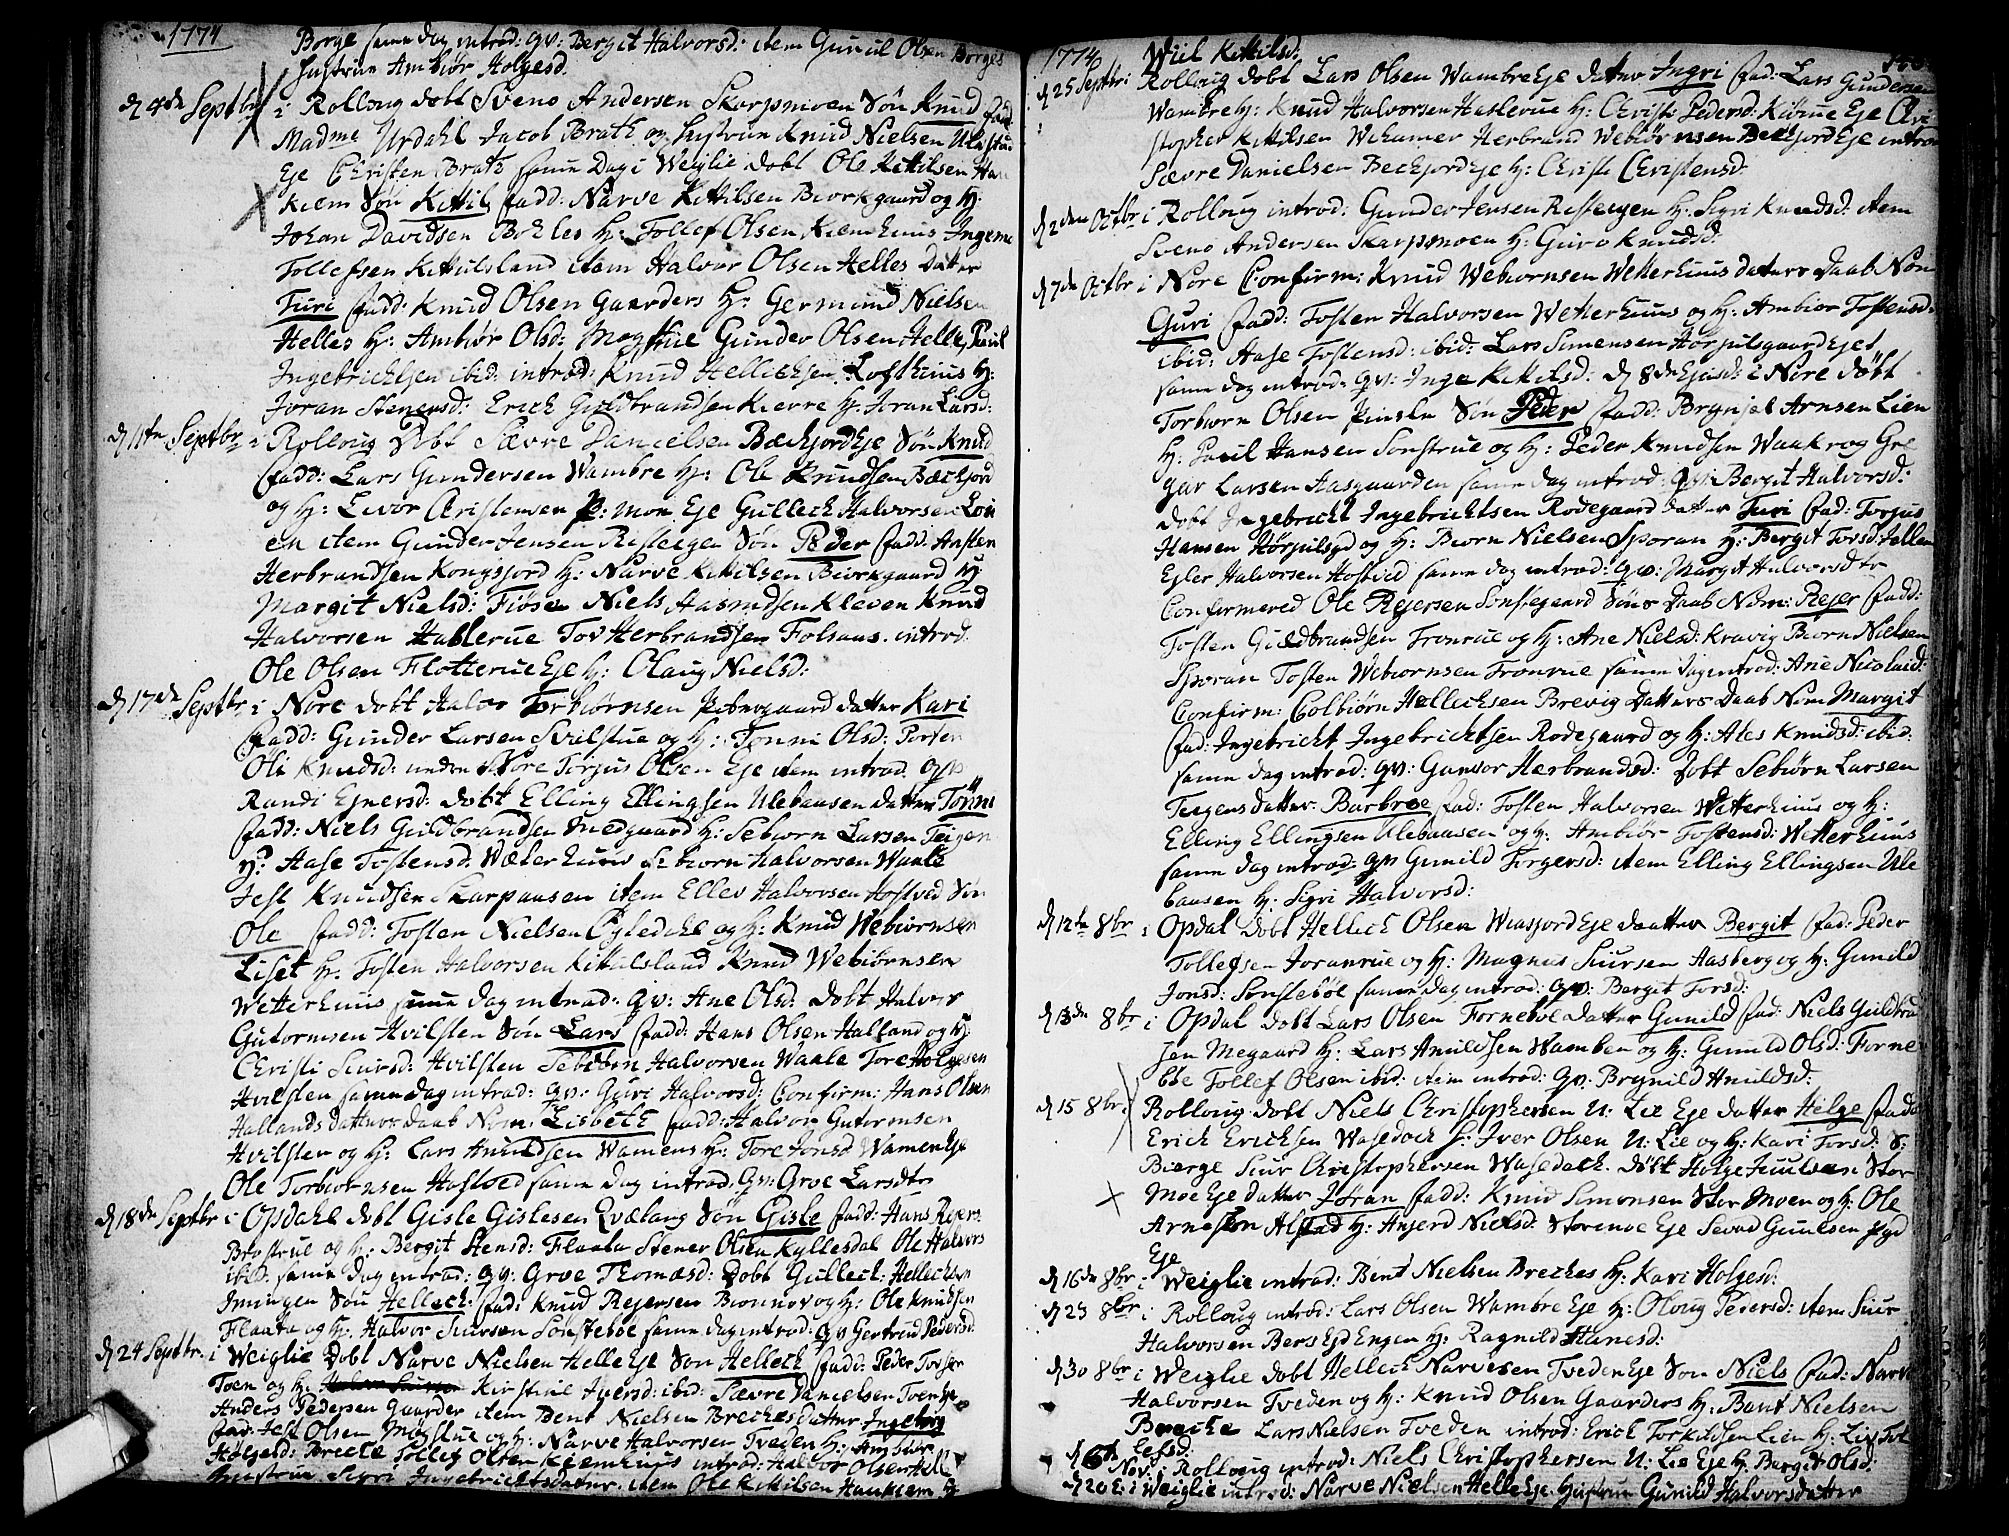 1774
Borge samme dag introd: qv: Bergit Halvorsd: item Gunuil Olsen Borges
hustrue Ambiør Holgesd.
d 4de Septbr i Rolloug døbt Sveno Andersen Skarpsmoen Søn Knud fad:
Madme Urdahl Jacob Brath og hustrue Knud Nielsen
Eje Christen Brath samme Dag i Weiglie døbt Ole Kittilsen Han
kiem Søn Kittil fadd: Narve Kittilsen Biorkgaard og H:
Johan Davidsen Bohles H: Tollef Olsen Kiemhuus Ingeme
Tollefsen Kittulsland item Halvor Olsen Helles Datter
Turi fadd: Knud Olsen Gaarders H: Germund Nielsen
Helles H: Ambiør Olsd: Møgstue Gunder Olsen Helle, Paul
Ingebrichtsen ibid: introd: Knud Hellichsen Lofthuus H:
Joran Stenersd: Erich Guldbrandsen Kierre H: Joran Larsd:
d 11te Septbr i Rolloug Døbt Sævre Danielsen Bækjord Eje Søn Knud
fadd: Lars Gundersen Wambre H: Ole Knudsen Bækjord
og H: Livor Christensen P: moe Eje Gulleck Halvorsen Loi
en item Gunder Jensen Risteigen Søn Peder fadd: Ansten
Herbrandsen Kongsjord H: Narve Kittilsen Biorkgaard H:
Margit Nielsd: Fiøse Niels Aasmdsen Kleven Knud
Halvorsen Hablerue Tov Herbrandsen Folsaas. introd.
Ole Olsen Flotterue Eje H: Olaug Nielsd:
d 17de Septbr i Nore døbt Halvor Torbiørnsen datter Kari
fadd: Gunder Larsen Svilstue og H: Tonni Olsd:
Oli Knudsd: neden Nore Torjus Olsen Eje item introd. qv
Randi Ejnersd: døbt Elling Ellingsen Ulebaasen datter Tønne
fadd: Niels Guldbrandsen Medgaard H: Sebiorn Larsen Teigen
H: Aase Tostensd: Wæterhuus Sebiorn Halvorsen Waale
Jest Knudsen Skarpaasen item Ellev Halvorsen Hostved Søn
Ole fadd: Tosten Nielsen Øgledahl og H: Knud Webiornsen
Liset H: Tosten Halvorsen Kittulsland Knud Webiørnsen
Wetterhuus samme dag introd: qv: Ane Olsd: Døbt Halvor
Gutormsen Hvilsten Søn Lars fadd: Hans Olsen Halland og H:
Christi Siursd: Hvilsten Sebiørn Halvorsen Waale Tore Holgesen
Hvilsten samme dag introd: qv: Guri Halvorsd: Confirm: Hans Olsen
Hallands datters daab Nom: Lisbeth fadd: Halvor Gutormsen
Hvilsten og H: Lars Anuldsen Wamens H: Tore Jonsd Wamen Eje
Ole Torbiornsen Hostved samme dag introd: Qv: Groe Larsdtr
d 18de Septbr i Opdahl døbt Gisle Gislesen Qvælang Søn Gisle fadd: Hans Rejers:
Brostrue og H: Bergit Stensd: Flaata Stener Olsen Kyllesdal Ole Halvors
ibid: samme Dag introd: qv: Groe Thomæsd: Dobt Gulleck: Hellichsen
Imingen Søn Helleck fad: Knud Rejersen Bionnov og H: Ole Knudsen
Flaata og H: Halvor Siursen Sønstebøe samme dag introd: qv Gertrud Pedersd:
d 24 Septbr. i Weiglie Døbt Narve Nielsen Helle Eje Søn Helleck fadd: Peder Torsen
Toen og H: Kirstine Iversd: ibid: Sævre Danielsen Toen Eje
Anders Pedersen Gaarder item Bent Nielsen Breches datter Ingeborg
fad: Jest Olsen Møgstue og H: Narve Halvorsen Tveden H: Ambiør
Holgesd: Breche Tollef Olsen Kiemhuus introd: Halvor Olsen Hell
hustrue Sigri Ingebrichtsdatter. item Ole Kittilsen Hankiem H:
1774 Wiil Kittilsd:
d 25 Septbri Rolloug døbt Lars Olsen Wambre Eje datter Ingri fad: Lars Gundersen
Wambre H: Knud Halvorsen Haslerue H: Christi Pedersd: Kiørue Eje Chri
stopher Kittilsen Wehamer Herbrand Webiørnsen Bekjord Eje introd
Sævre Danielsen Beckjord Eje H: Christi Christensd.
d 2den Octbr i Rolloug introd: Gunder Jensen Risteigen H: Sigri Knudsd: item
Sveno Andersen Skarpsmoen H: Guro Knudsd:
d 7de Octbr i Nore Confirm: Knud Webiornsen Wetterhuus datters Daab Nom
Guri fadd: Tosten Halvorsen Wetterhuus og H: Ambiør Tostensd:
ibid: Aase Tostensd: ibid: Lars Simensen Hørjulsgaard Ejet
samme dag introd: qv: Inge Kittilsd: d 8de Ejusd: i Nore døbt
Torbiorn Olsen Søn Peder fadd: Brynjel Arnsen Lien
H: Paul Hansen Sønstrue og H: Peder Knudsen Waakr og Gre
gar Larsen Aasgaarden samme dag introd: qv: Bergit Halvorsd:
døbt Ingebricht Ingebrichtsen Rødegaard datter Turi fad: Torjus
Hansen Hørjulsgd og H: Biorn Nielsen Sporan H: Bergit Torsd:
Ejler Halvorsen Hostved samme dag introd: qv: Margit Halvorsdtr
Confirmered Ole Rejersen Sønstegaard Søns Daab Nom: Rejer fadd:
Tosten Guldbrandsen Fronrue og H: Ane Nielsd: Kravig Biorn Nielsen
Sporan Tosten Webiornsen Fronrue samme dag introd: Ane Nicolaid:
Confirm: Colbiørn Hellichsen Brevig Datters Daab Nom Margit
fad: Ingebricht Ingebrichtsen Rødegaard og H: Ales Knudsd: ibid:
samme dag introd: qv: Gunvor Herbrandsd: døbt Sebiørn Larsen
Teigens datter Barbroe fad: Tosten Halvorsen Wetterhuus og H:
Elling Ellingsen Ulebaasen og H: Ambiør Tostensd: Wetterhuus
samme dag introd: qv Gunild Torgersd: item Elling Ellingsen Ule
baasen H: Sigri Halvorsd:
d 12te 8br i Opdal Døbt Hellich Olsen Wiasjord Eje daatter Bergit fad: Peder
Tollefsen Joranrue og H: Magnus Siursen Aasberg og H: Gunild
Jonsd: Sønstebøe samme dag introd: qv: Bergit Torsd:
d 13de 8br i Opdal Dobt Lars Olsen Fornebøe Datter Gunild fad: Niels Guldbrand
sen Megaard H: Lars Anuldsen Wamben og H: Gunild Olsd: Forne
bøe Tollef Olsen ibid: item introd: qv: Brynild Anuldsd:
d 15 8br. Rolloug døbt Niels Christophersen N: Lie Eje datter Helge fadd
Erich Erichsen Wasedoch H: Iver Olsen N: Lie og H: Kari Torsd: S:
Bierge Siur Christophersen Wasedoch. døbt Holge Juulsen Stor
Moe Eje datter Jøran fadd: Knud Simonsen Stor Moen og H: Ole
Arnesen Alstad H: Anjerd Nielsd: Storemoe Eje Sevad Gunlsen
Eje
d 16de 8br i Weiglie introd: Bent Nielsen Breches H: Kari Holgesd:
d 23 8br: i Rolloug introd: Lars Olsen Wambre Eje H: Oloug Pedersd: item Siur
Halvorsen Bers Ejd Engen H: Ragnild Hanesd:
d 30 8br i Weiglie døbt Hellich Narvesen Tveden Eje Søn Niels fad: Narve
Halvorsen Tveden og H: Knud Olsen Gaarders H: Bent Nielsen
Breche Lars Nielsen Tveden introd: Erich Torkildsen Lien H: Liv Tol
lefsd:
d 6te Nov: i Rolloug introd: Niels Christophersen N: Lie Eje H: Bergit Olsd:
d 20 E: i Weiglie introd: Narve Nielsen Helle Eje Hustrue Gunild Halvorsdatter